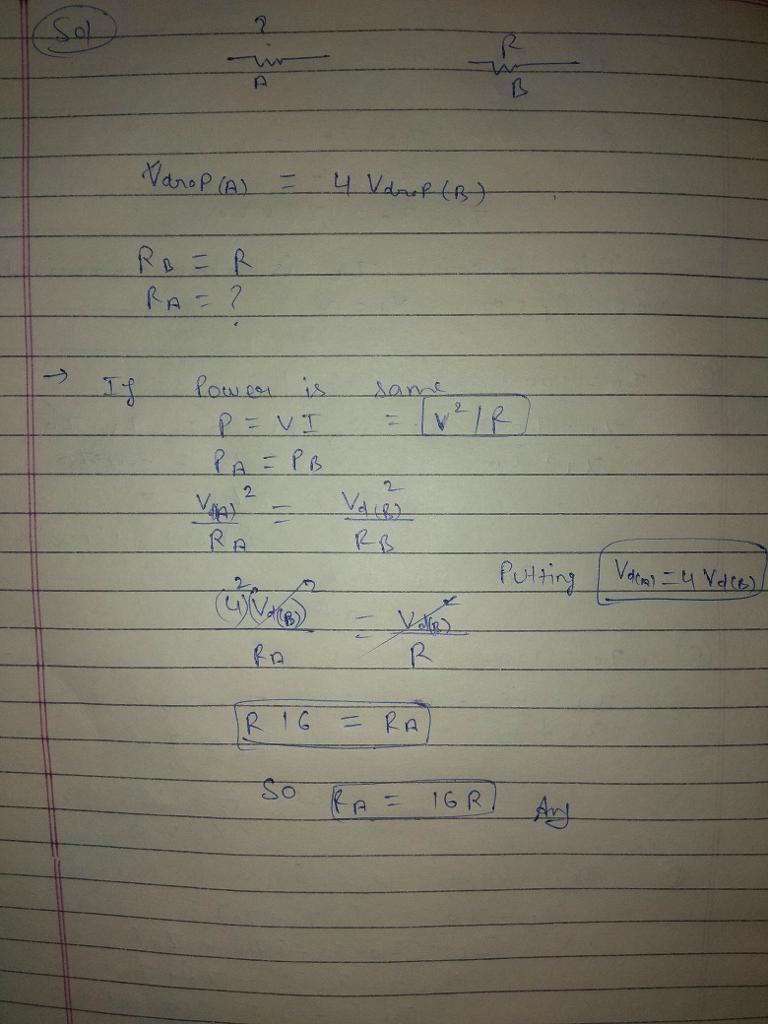 Sol
?
A
R
B
Vdrop(A) = 4 Vdrop(B)
RB = R
RA = ?
→ If Power is same
P = VI = V²/R
PA = PB
Vd(A)² / RA = Vd(B)² / RB
Putting Vd(A) = 4 Vd(B)
(4)²(Vd(B))² / RA = Vd(B)² / R
R 16 = RA
So RA = 16R Ans